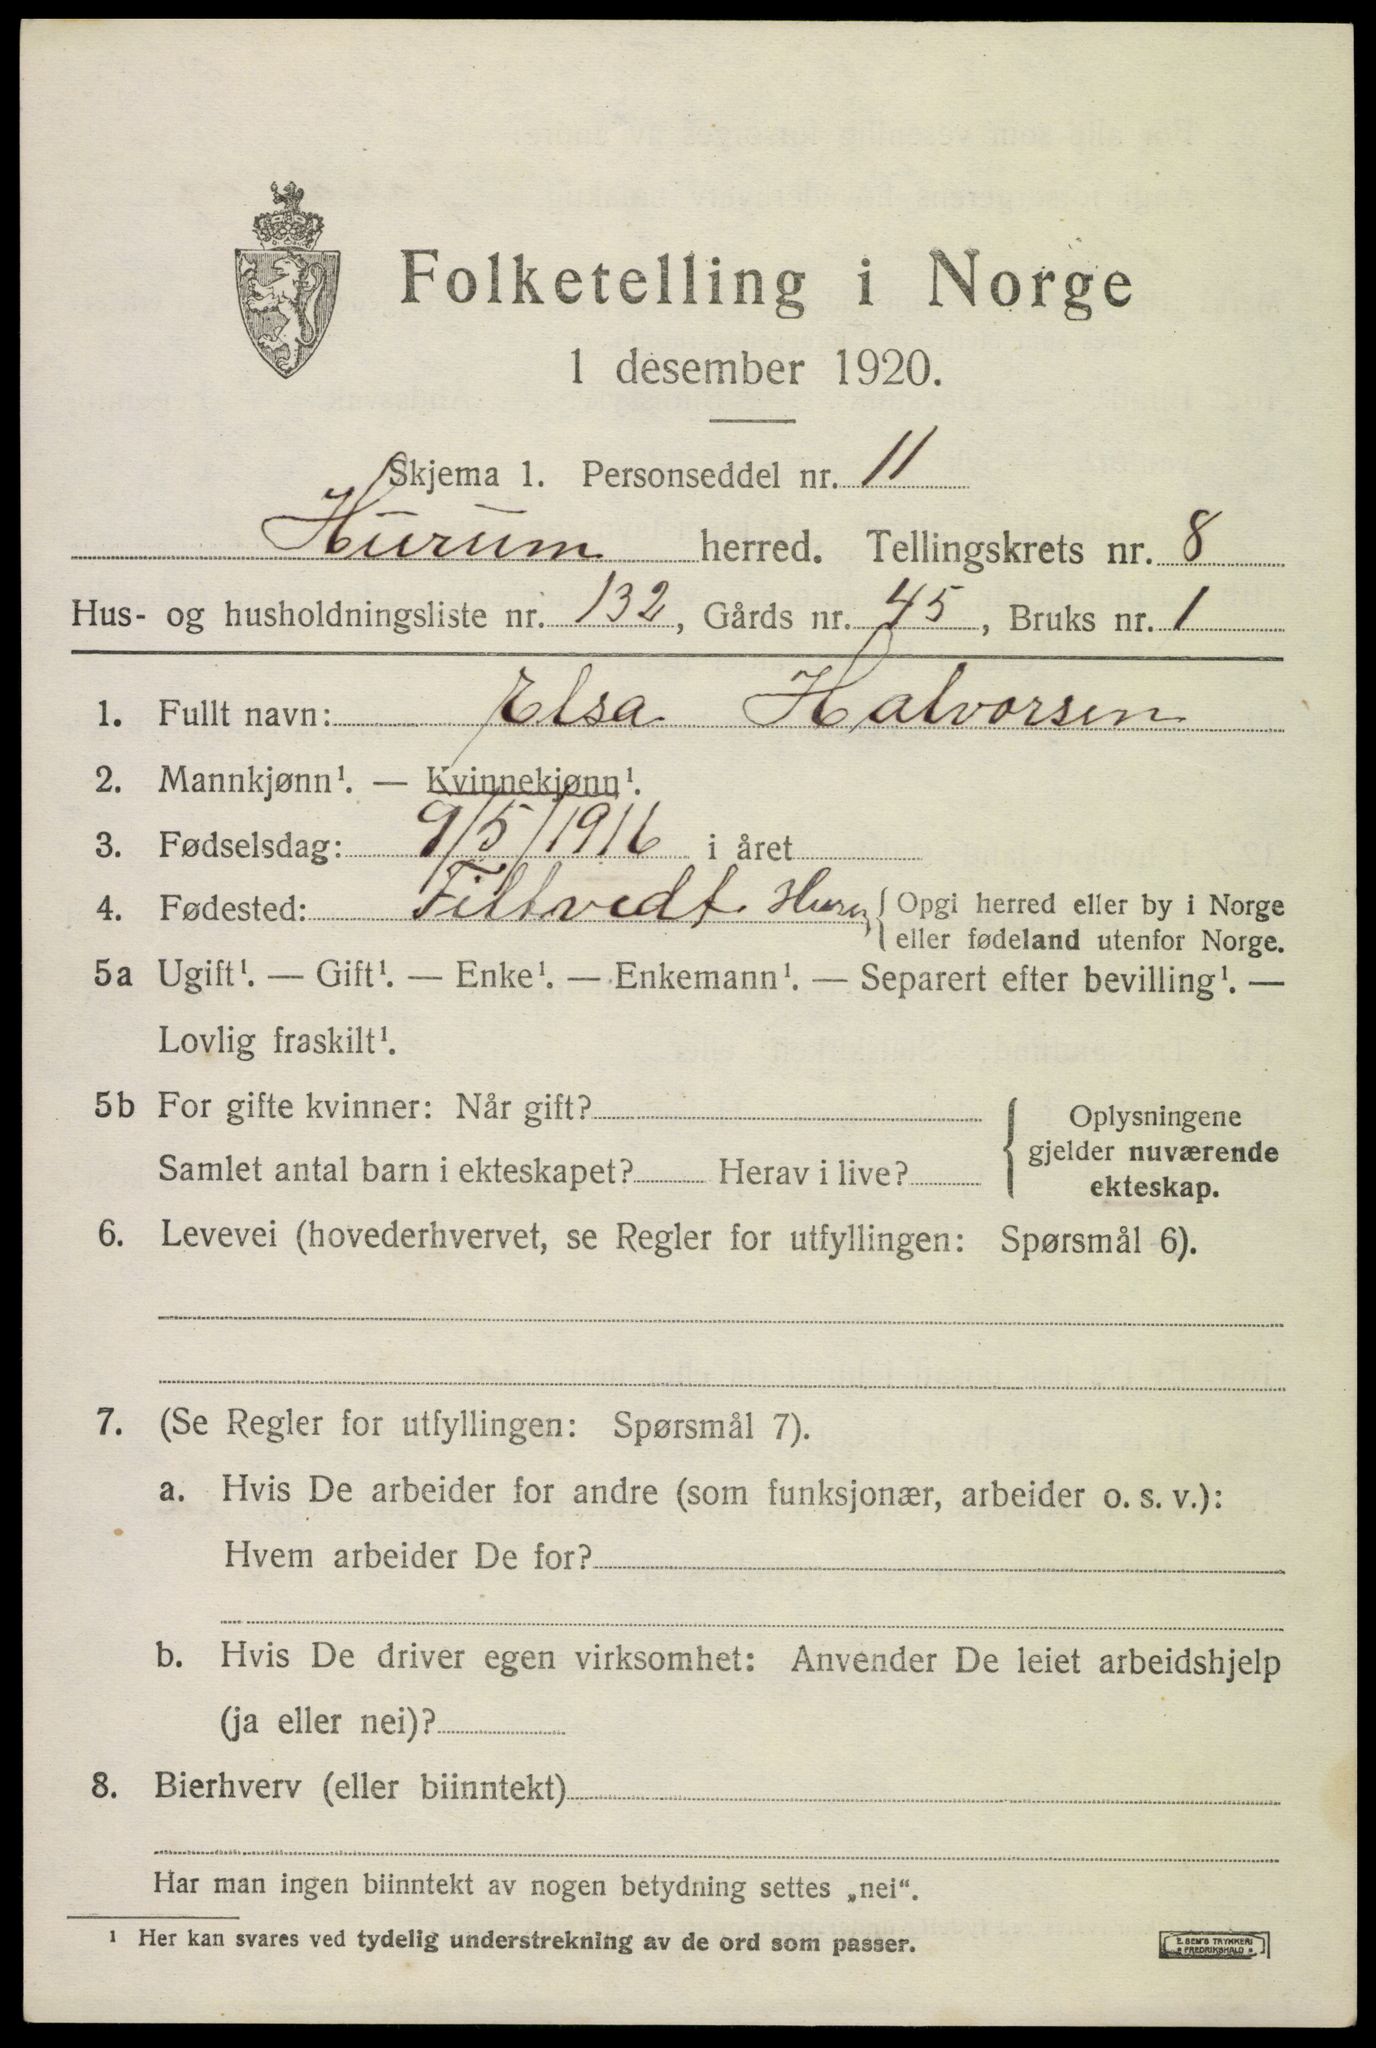 Folketelling i Norge
1 desember 1920.
Skjema 1. Personseddel nr. 11
Hurum herred. Tellingskrets nr. 8
Hus- og husholdningsliste nr. 132, Gårds nr. 45, Bruks nr. 1
1. Fullt navn: Elsa Halvorsen
2. Mannkjønn¹. — Kvinnekjønn¹.
3. Fødselsdag: 9/5/1916 i året
4. Fødested: Filtvedt {Opgi herred eller by i Norge
eller fødeland utenfor Norge.
5a Ugift¹. — Gift¹. — Enke¹. — Enkemann¹. — Separert efter bevilling¹. —
Lovlig fraskilt¹.
5b For gifte kvinner: Når gift?
Samlet antal barn i ekteskapet? Herav i live?
{Oplysningene
gjelder nuværende
ekteskap.
6. Levevei (hovederhvervet, se Regler for utfyllingen: Spørsmål 6).
7. (Se Regler for utfyllingen: Spørsmål 7).
a. Hvis De arbeider for andre (som funksjonær, arbeider o. s. v.):
Hvem arbeider De for?
b. Hvis De driver egen virksomhet: Anvender De leiet arbeidshjelp
(ja eller nei)?
8. Bierhverv (eller biinntekt)
Har man ingen biinntekt av nogen betydning settes „nei“.
¹ Her kan svares ved tydelig understrekning av de ord som passer.
E. SEM'S TRYKKERI
FREDRIKSHALD